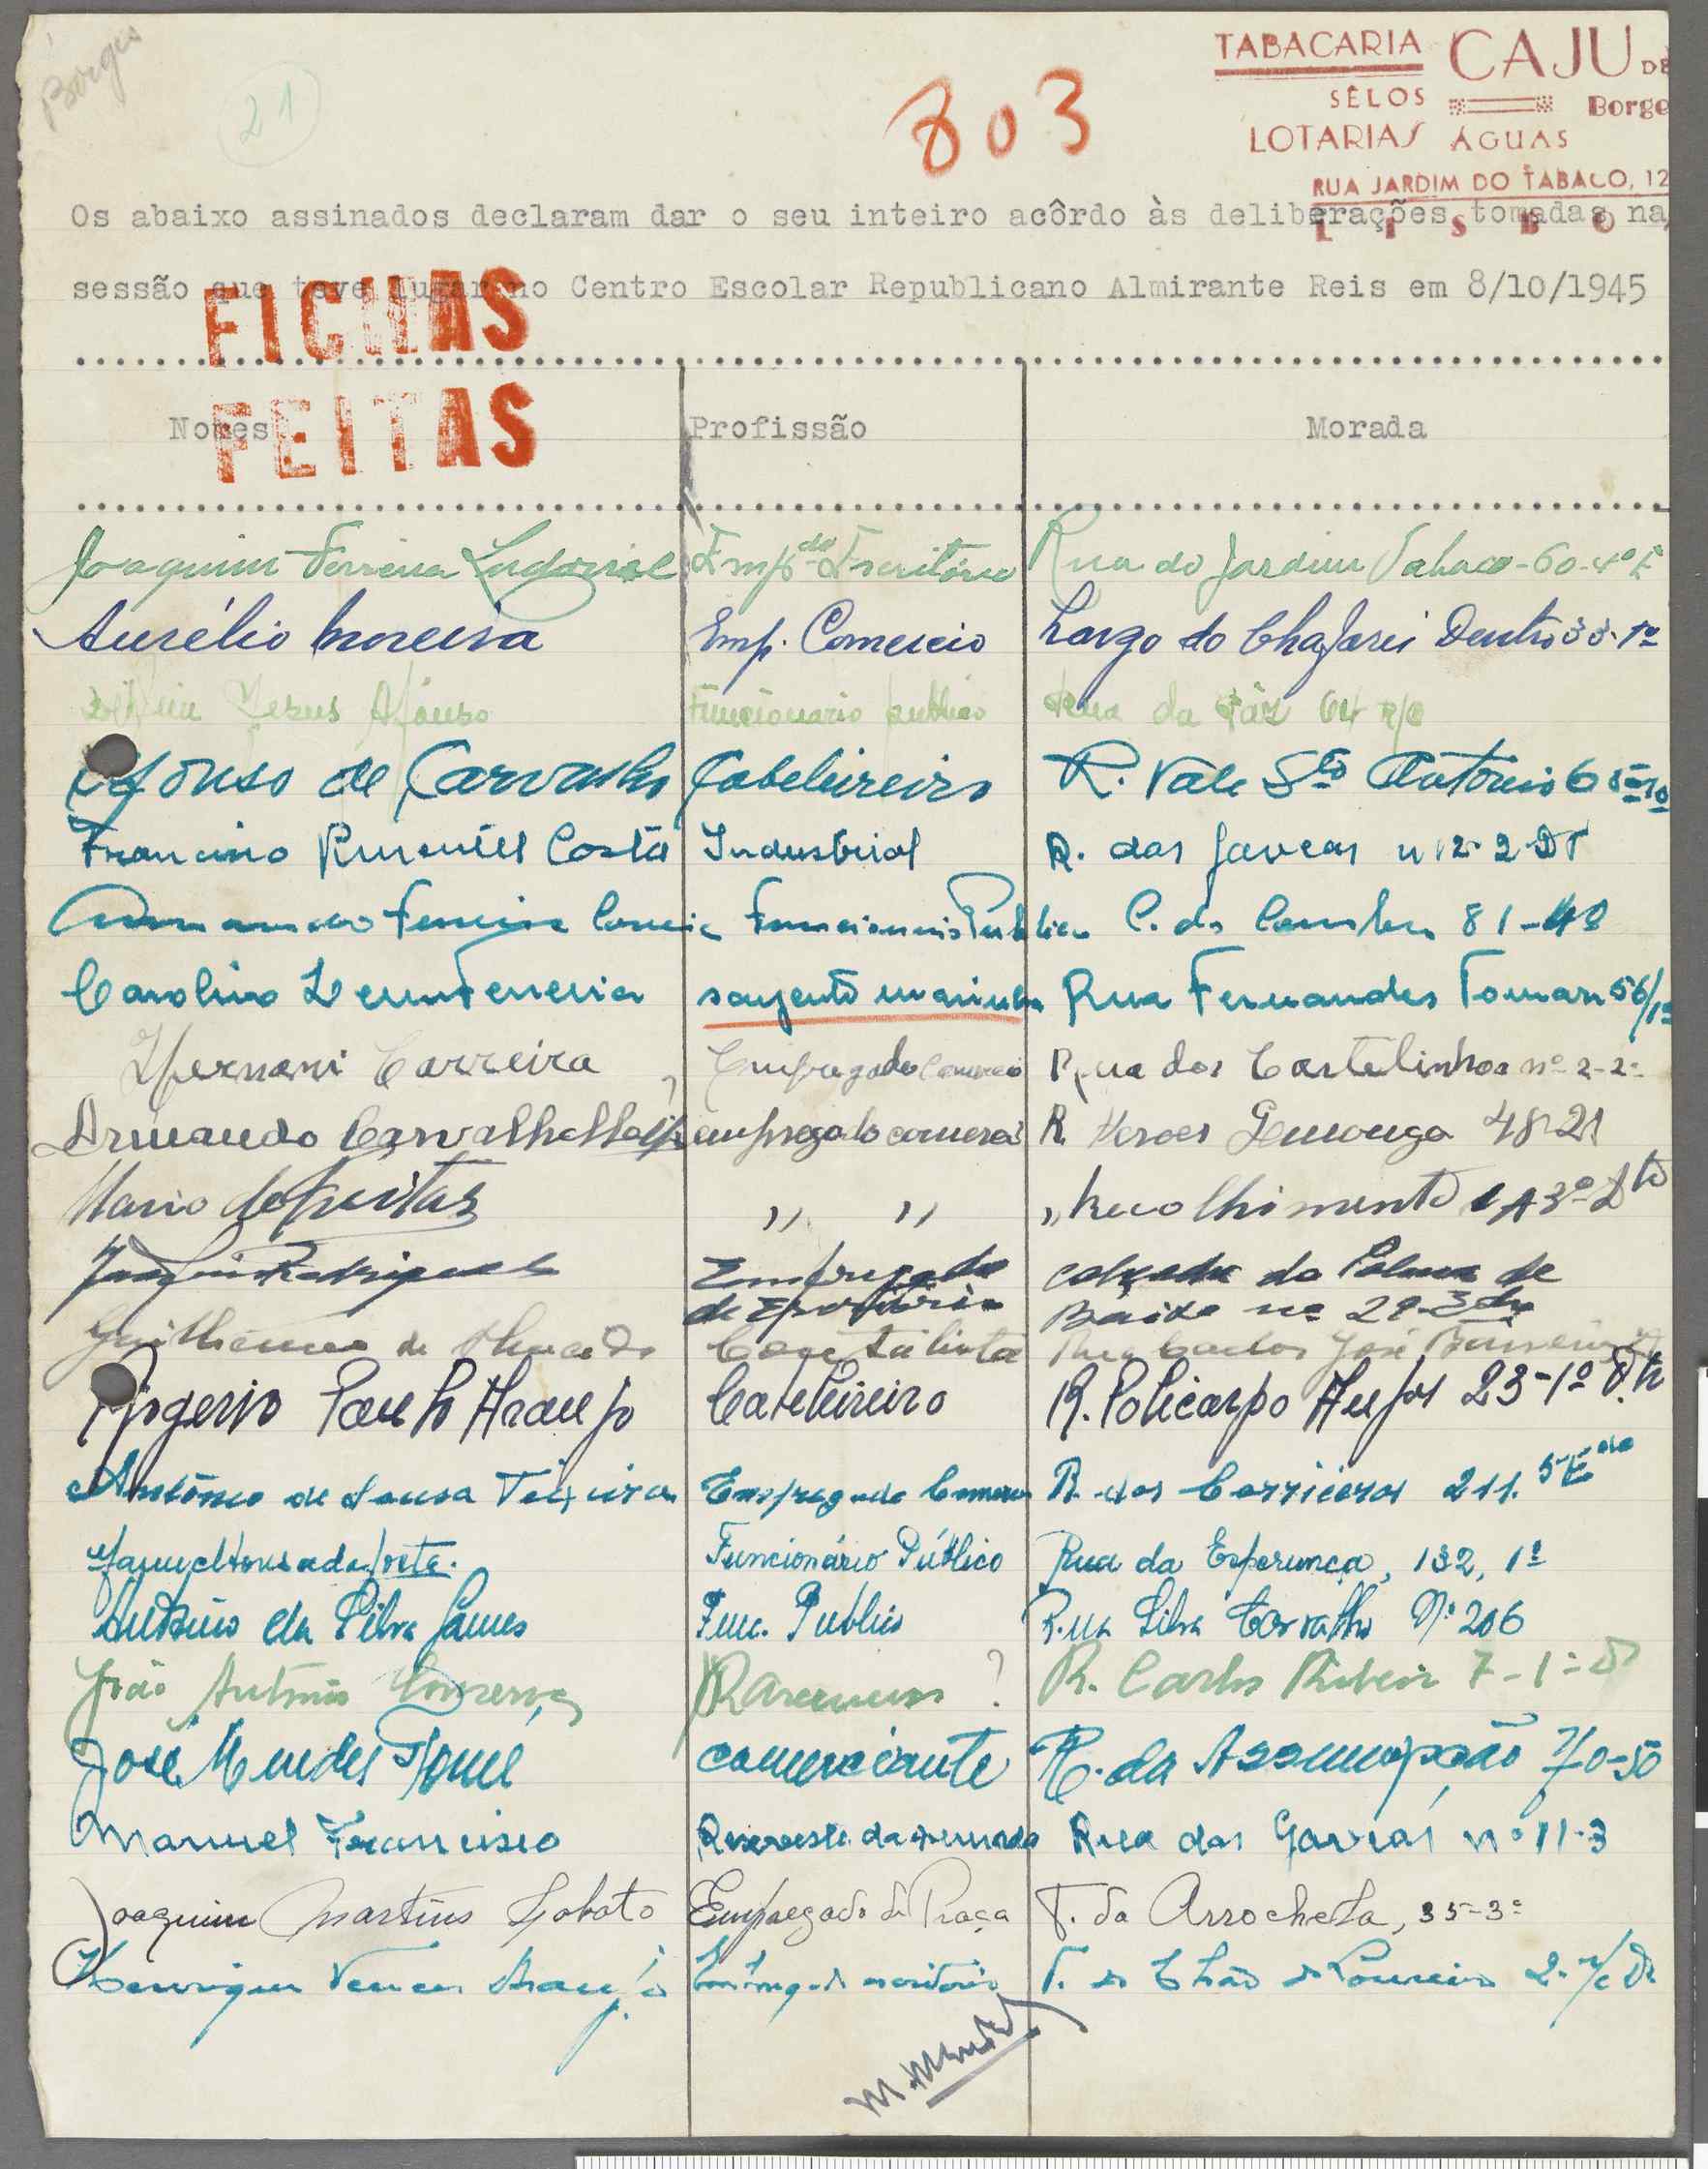 Borges
21
803
TABACARIA CAJU DE
SÊLOS Borge
LOTARIAS ÁGUAS
RUA JARDIM DO TABACO, 12
L I S B O
Os abaixo assinados declaram dar o seu inteiro acôrdo às deliberações tomadas na
sessão que teve lugar no Centro Escolar Republicano Almirante Reis em 8/10/1945
FICHAS
FEITAS
Nomes Profissão Morada
Joaquim Ferreira Emp.do Escritório Rua do Jardim Tabaco-60-4º E
Aurélio Moreira Emp. Comercio Largo do Chafariz Dentro 33-1º
Jesus Afonso Funcionario publico Rua da 64 R/C
Afonso de Carvalho Cabeleireiro R. Vale Stº Antonio 6
Francisco Pimentel Costa Industrial R. das Gaveas n 12-2-DT
Armando Ferreira Correia Funcionario Publico C. do Combro 81-4º
Carolino Ferreira sargento marinha Rua Fernandes Tomas 56/1º
Hernani Carreira Empregado Comercio Rua dos Castelinhos nº 2-2º
Armando Carvalho empregado comercio R. 48-21
Mario de Freitas " " " Recolhimento 1A 3º Dto
Joaquim Rodrigues Empregado calçada do de
de Escritório Baixo nº 29-3
Guilherme de Rua José Barreiros
Rogerio Paulo Araujo Cabeleireiro R. Policarpo Anjos 23-1º Dt
António de Sousa Teixeira Empregado Comercio R. dos Correeiros 211. 5º Edo
Funcionário Público Rua da Esperança, 132, 1º
António da Silva Func. Publico Rua Silva Carvalho Nº 206
João António ? R. Carlos Ribeiro 7-1º D
José Mendes Tomé comerciante R. da Assumpção 70-5º
Manuel Francisco da Armada Rua das Gaveas nº 11-3
Joaquim Martins Lobato Empregado de Praça T. da Arrochela, 35-3º
Henrique Araujo escritorio T. do Chão do Loureiro 2-r/c D
M. Mendes